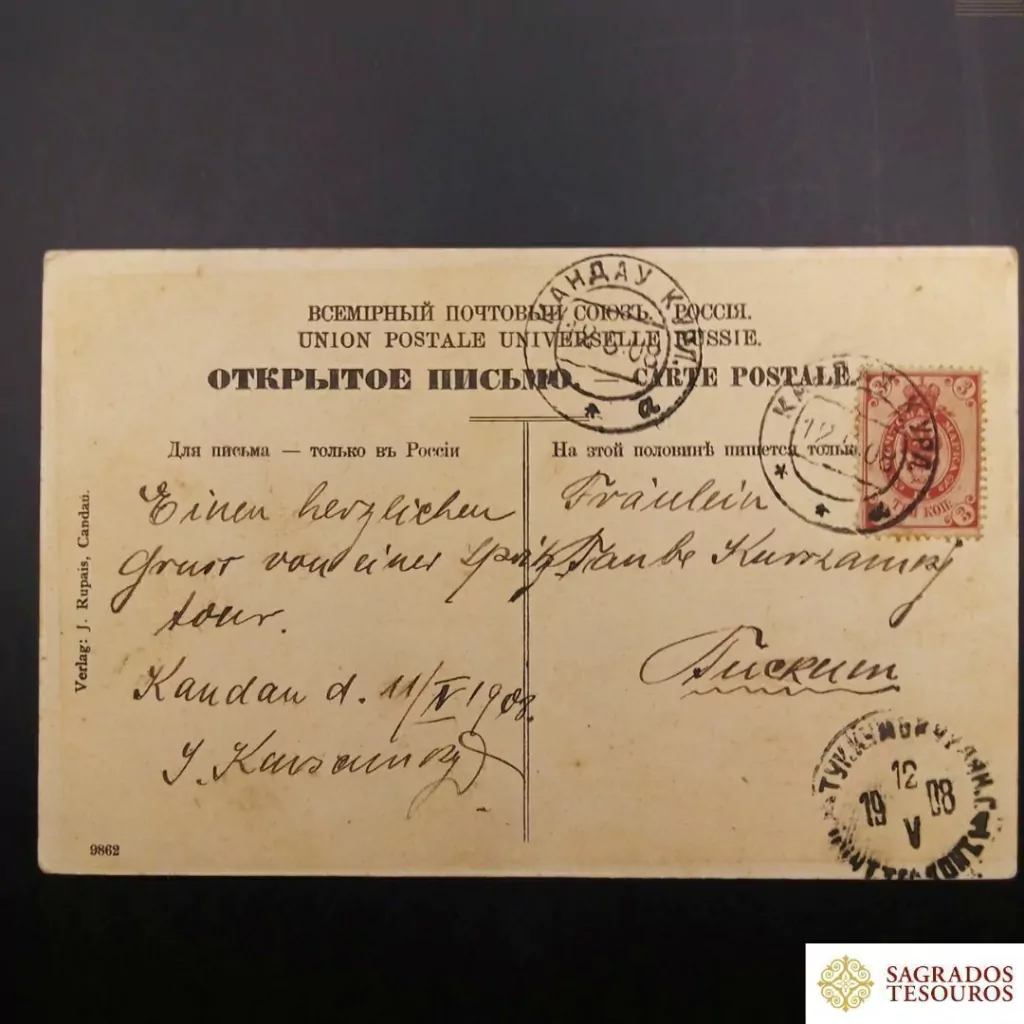 ВСЕМІРНЫЙ ПОЧТОВЫЙ СОЮЗЪ. РОССІЯ.
UNION POSTALE UNIVERSELLE RUSSIE.
ОТКРЫТОЕ ПИСЬМО. — CARTE POSTALE.
КАНДАУ КУРЛ.
а
12
3 3
КОП.
Для письма — только въ Россіи
На этой половинѣ пишется только
Einen herzlichen
Gruss von einer Spritz
tour.
Kandau d. 11/IV 1908.
Fräulein
Taube
Verlag: J. Rupais, Candau.
9862
12
19 08
V
SAGRADOS
TESOUROS